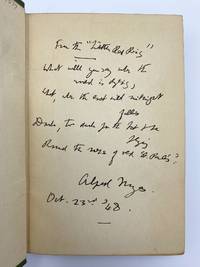 From the "Little Red Ring"
What will you say when the
world is dying,
What, when the last wild midnight
falls
Dark, too dark for the bat to be
flying
Round the ruins of old St. Paul's?
Alfred Noyes
Oct. 23rd '48.